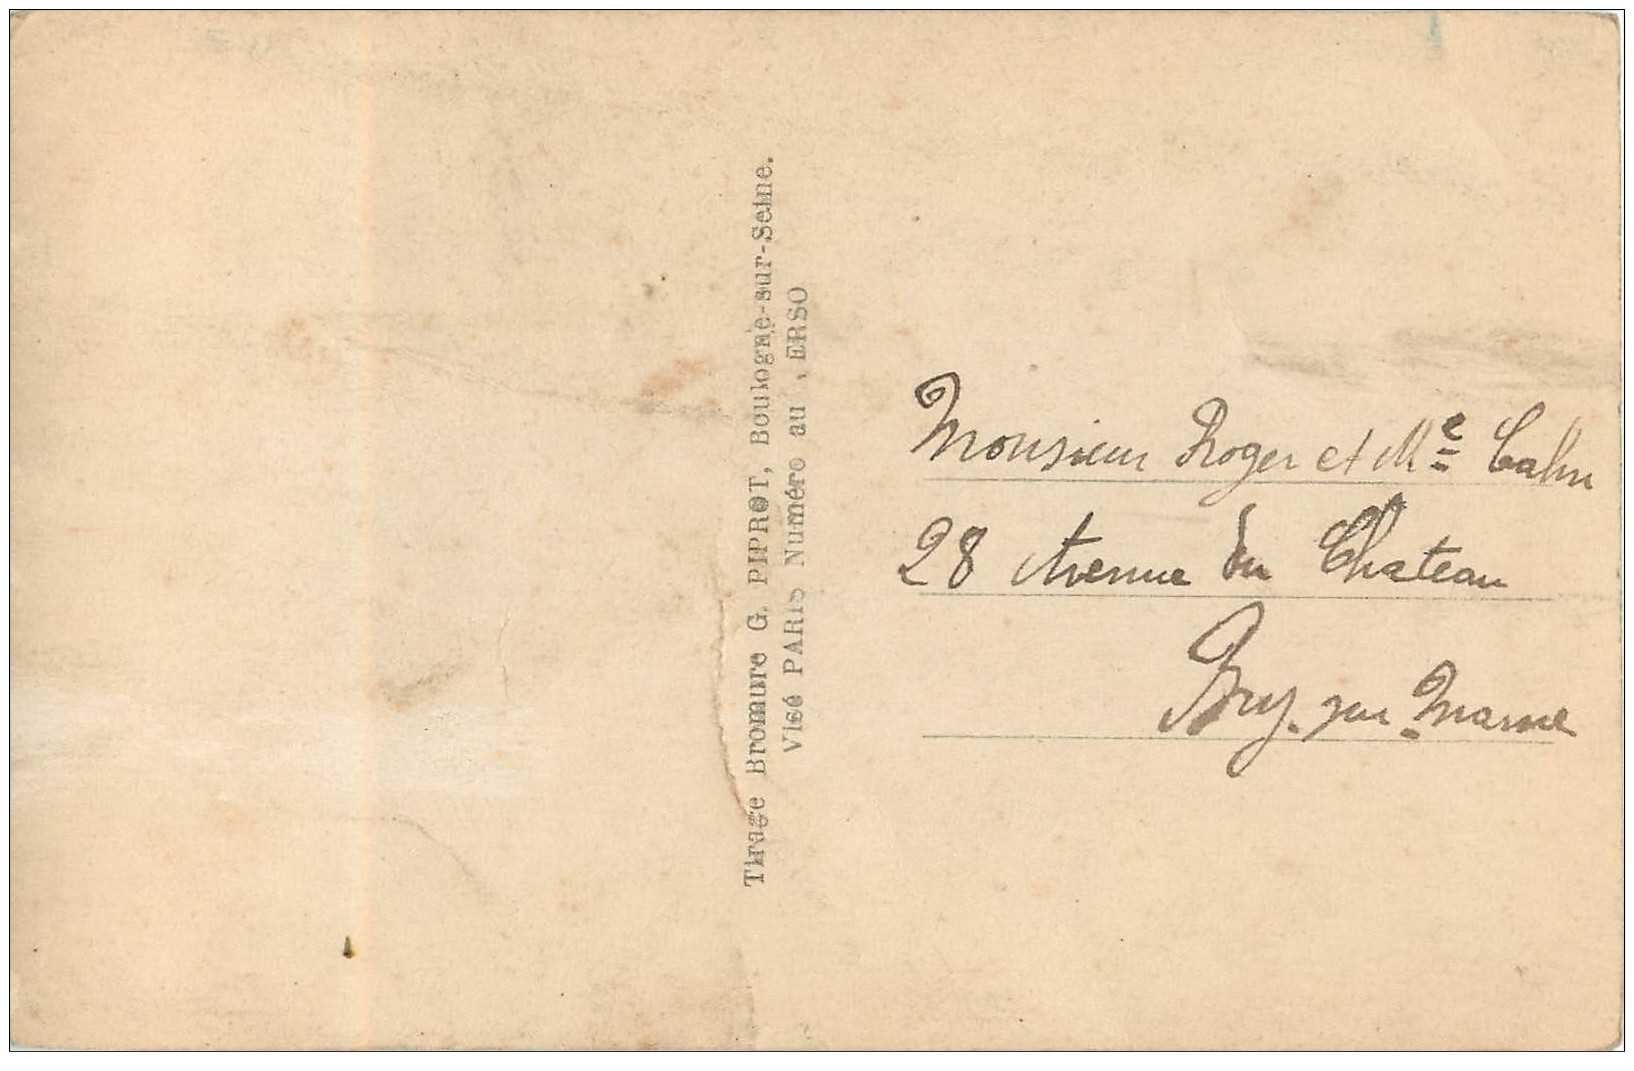 Tirage Bromure G. PIPROT, Boulogne-sur-Seine.
Visé PARIS Numéro au VERSO
Monsieur Roger et Me Cahn
28 Avenue du Chateau
Bry-sur-Marne